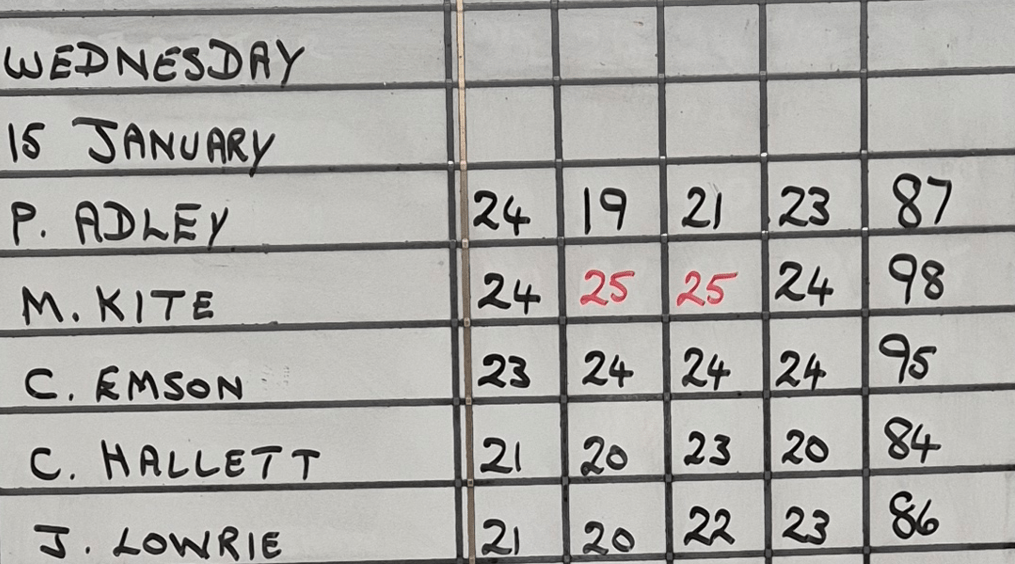 WEDNESDAY
15 JANUARY
P. ADLEY 24 19 21 23 87
M. KITE 24 25 25 24 98
C. EMSON 23 24 24 24 95
C. HALLETT 21 20 23 20 84
J. LOWRIE 21 20 22 23 86